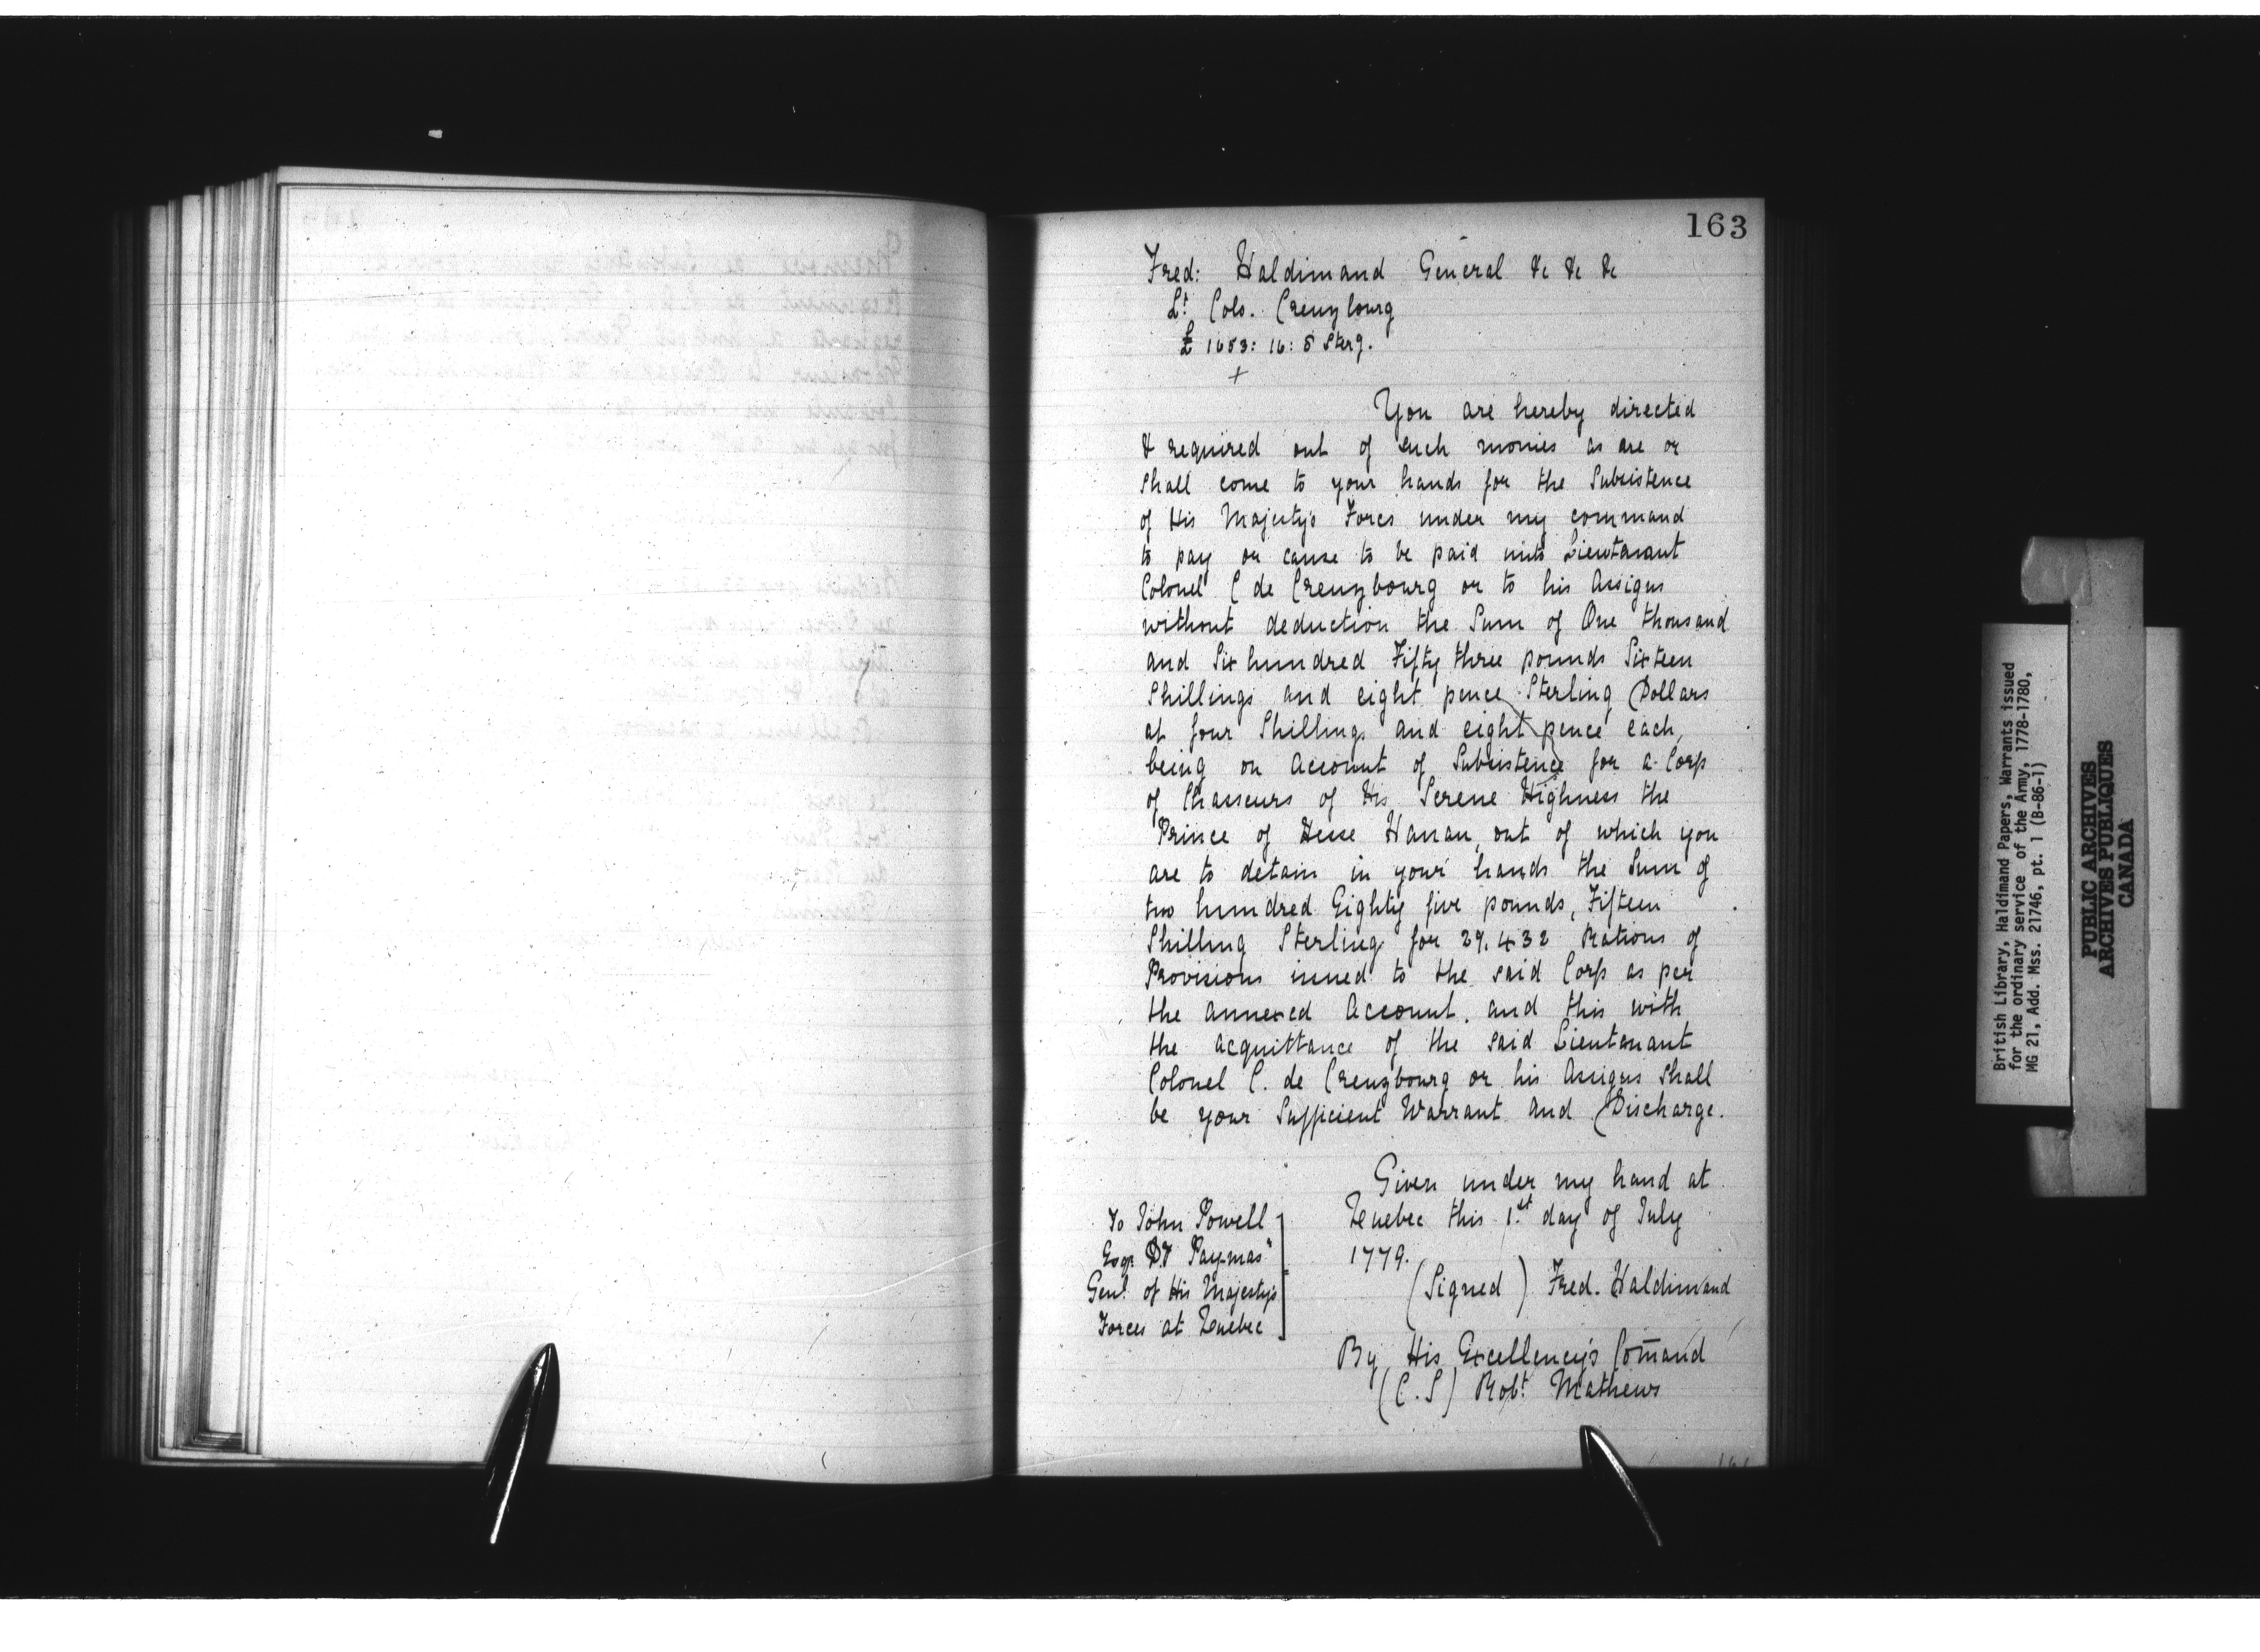 163
Fred: Haldimand General &c &c &c
Lt Colo. Creuzbourg
£ 1653: 16: 8 Sterg.
+
You are hereby directed
& required out of such monies as are or
shall come to your hands for the Subsistence
of His Majesty's Forces under my command
to pay or cause to be paid unto Lieutanant
Colonel C de Creuzbourg or to his Assigns
without deduction the Sum of One thousand
and Six hundred Fifty three pounds Sixteen
Shillings and eight pence Sterling Dollars
at four Shillings and eight pence each,
being on Account of Subsistence for a Corp
of Chasseurs of His Serene Highness the
Prince of Hesse Hanau, out of which you
are to detain in your hands the Sum of
two hundred Eighty five pounds, Fifteen
Shilling Sterling for 29.432 Rations of
Provisions issued to the said Corp as per
the annexed Account. and this with
the acquittance of the said Lieutanant
Colonel C. de Creuzbourg or his Assigns shall
be your Sufficient Warrant and Discharge.
Given under my hand at
Quebec this 1st day of July
1779.
(Signed) Fred. Haldimand
To John Powell
Esqr Dy Paymas"
Genl of His Majestys
Forces at Quebec
By His Excellency's Comand
(C.S) Robt Mathews
British Library, Haldimand Papers, Warrants issued
for the ordinary service of the Army, 1778-1780,
MG 21, Add. Mss. 21746, pt. 1 (B-86-1)
PUBLIC ARCHIVES
ARCHIVES PUBLIQUES
CANADA